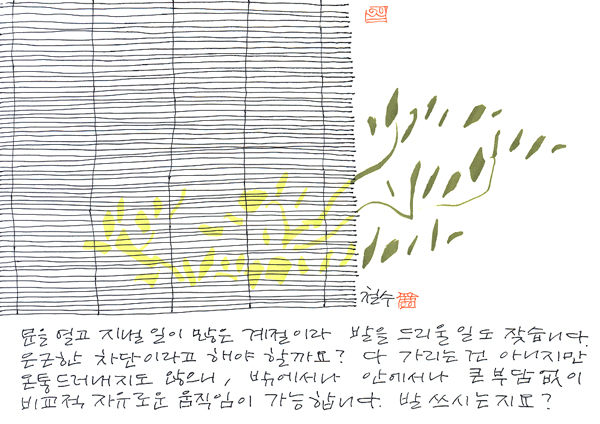 철수
문을 열고 지낼 일이 많은 계절이라 발을 드리울 일도 잦습니다.
은근한 차단이라고 해야 할까요? 다 가리는 건 아니지만
온통 드러내지도 않으니, 밖에서나 안에서나 큰 부담 없이
비교적 자유로운 움직임이 가능합니다. 발 쓰시는지요?